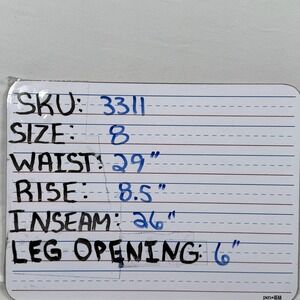 SKU: 3311
SIZE: 8
WAIST: 29"
RISE: 8.5"
INSEAM: 26"
LEG OPENING: 6"